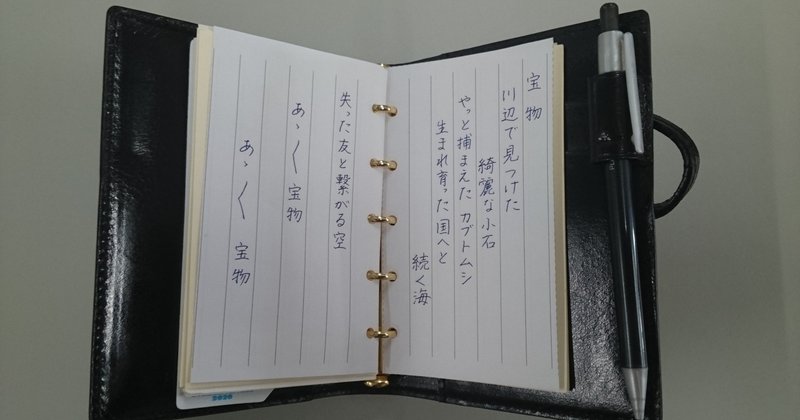 宝物
川辺で見つけた
綺麗な小石
やっと捕まえたカブトムシ
生まれ育った国へと
続く海
失った友と繋がる空
あゝ〱宝物
あゝ〱宝物
2020